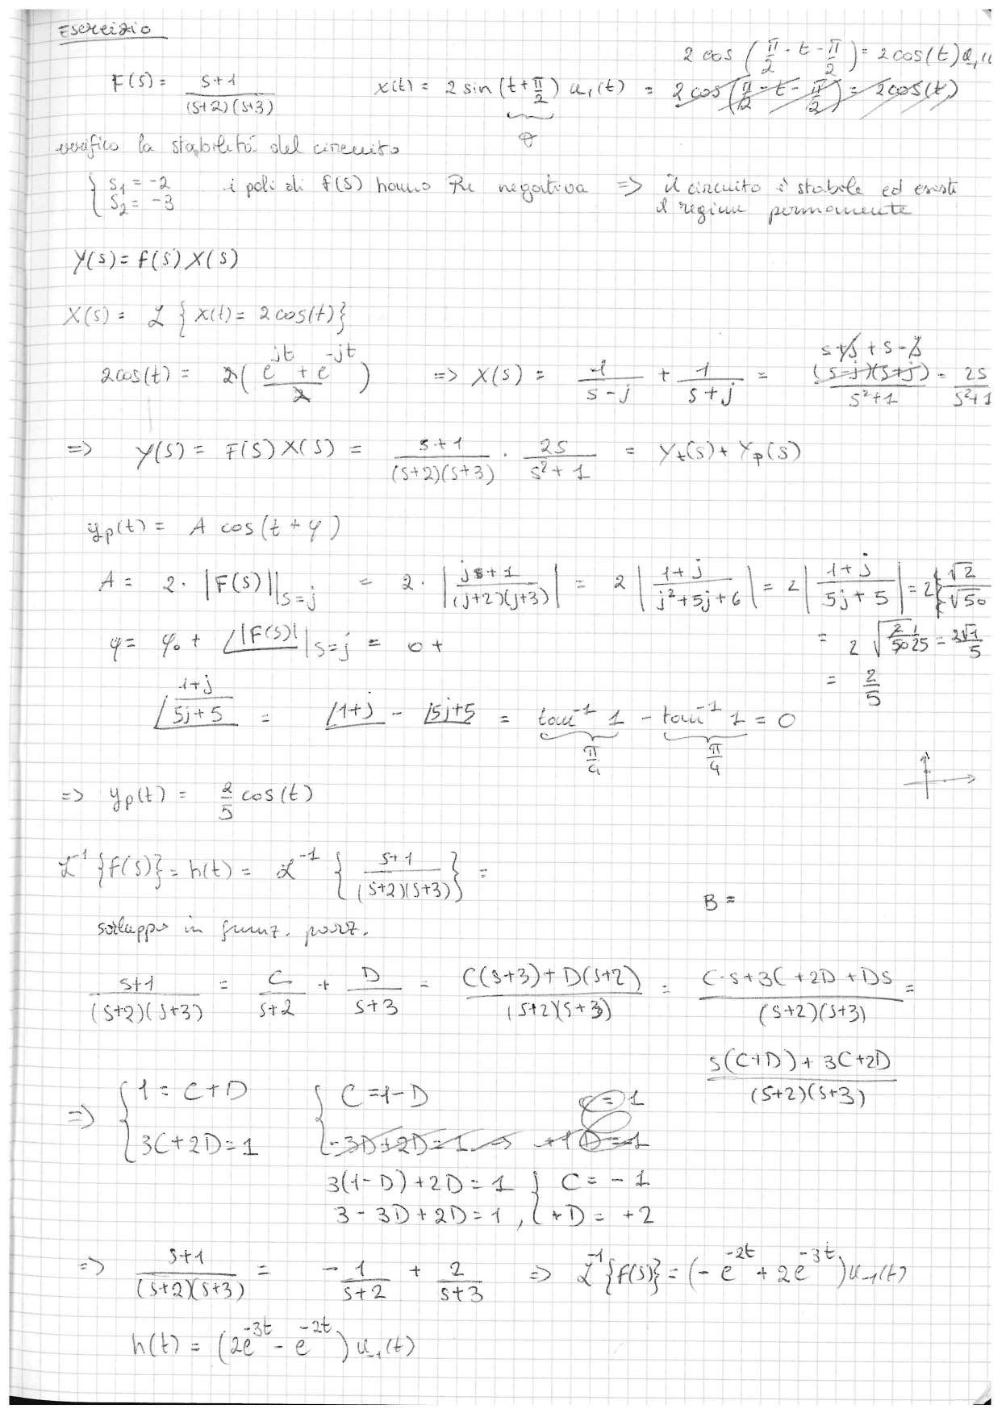 Esercizio
2 cos (π/2 - t - π/2) = 2cos(t) u₋₁(t
F(s) = (s+1)/((s+2)(s+3))    x(t) = 2 sin (t+π/2) u₋₁(t) = 2 cos(π/2 - t - π/2) = 2cos(t)
verifico la stabilità del circuito
{ s₁ = -2    i poli di F(s) hanno Re negativa => il circuito è stabile ed esiste
s₂ = -3    il regime permanente
Y(s) = F(s) X(s)
X(s) = ℒ { x(t) = 2cos(t) }
2cos(t) = 2 ( (e^{jt} + e^{-jt})/2 ) => X(s) = 1/(s-j) + 1/(s+j) = (s+j + s-j)/((s-j)(s+j)) s²+1 = 2s/(s²+1
=> Y(s) = F(s) X(s) = (s+1)/((s+2)(s+3)) · 2s/(s²+1) = Y_t(s) + Y_p(s)
y_p(t) = A cos(t + φ)
A = 2 · |F(s)| |_{s=j} = 2 · | (j+1)/((j+2)(j+3)) | = 2 | (1+j)/(j²+5j+6) | = 2 | (1+j)/(5j+5) | = 2 √2/√50
φ = φ₀ + ∠|F(s)| |_{s=j} = 0 +    = 2 √(2/50) 1/25 = 2√1/5
= 2/5
∠ (1+j)/(5j+5) = ∠1+j - ∠5j+5 = tan⁻¹ 1 - tan⁻¹ 1 = 0
π/4    π/4
=> y_p(t) = 2/5 cos(t)
ℒ⁻¹ {F(s)} = h(t) = ℒ⁻¹ { (s+1)/((s+2)(s+3)) } =
B =
sviluppo in funz. parz.
(s+1)/((s+2)(s+3)) = C/(s+2) + D/(s+3) = (C(s+3) + D(s+2))/((s+2)(s+3)) = (C·s+3C+2D+Ds)/((s+2)(s+3)) =
(s(C+D) + 3C+2D)/((s+2)(s+3))
=> { 1 = C+D    { C = 1-D    C = 1
3C+2D = 1    -3D+2D = 1 -> +1 D = -1
3(1-D) + 2D = 1 { C = -1
3 - 3D + 2D = 1 , +D = +2
=> (s+1)/((s+2)(s+3)) = - 1/(s+2) + 2/(s+3) => ℒ⁻¹ {F(s)} = (-e^{-2t} + 2e^{-3t}) u₋₁(t)
h(t) = (2e^{-3t} - e^{-2t}) u₋₁(t)